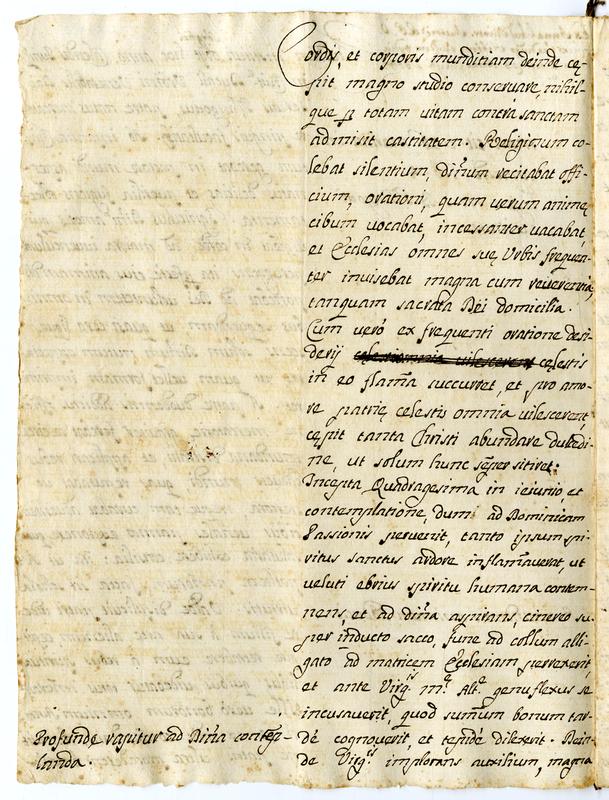 Cordis, et corporis munditiam deinde cę-
pit magno studio conservare, nihil-
que p totam vitam contra sanctam
admisit castitatem. Religiosum co-
lebat silentium, diñum recitabat offi-
cium, orationi, quam verum animę
cibum vocabat, incessanter vacabat,
et Ecclesias omnes suę Urbis frequen-
ter invisebat magna cum reverentia,
tanquam sacrata Dei domicilia.
Cum verò ex frequenti oratione desi-
derij celestis
in eo flam̃a succurret, et pro amo-
re patrię celestis omnia vilescerent,
cępit tanta Christi abundare dulcedi-
ne, ut solum hunc sẽper sitiret.
Incepta Quadragesima in ieiunio et
contemplatione, dum ad Dominicam
Passionis pervenit, tanto ipsum spi-
ritus sanctus ardore inflam̃averat, ut
veluti ebrius spiritu humana contem-
nens, et ad diña aspirans, cinereo su-
per inducto sacco, fune ad collum alli-
gato ad matricem Ecclesiam perrexerit,
et ante Virg.ᶦˢ m.ᵉ Alt.ᵉ genuflexus se
incusaverit, quod sum̃um bonum tar-
dè cognoverit, et tepidè dilexerit. Dein-
de Virg.ᶦˢ implorans auxilium, magna
Profundę rapitur ad Diña contẽp-
landa.